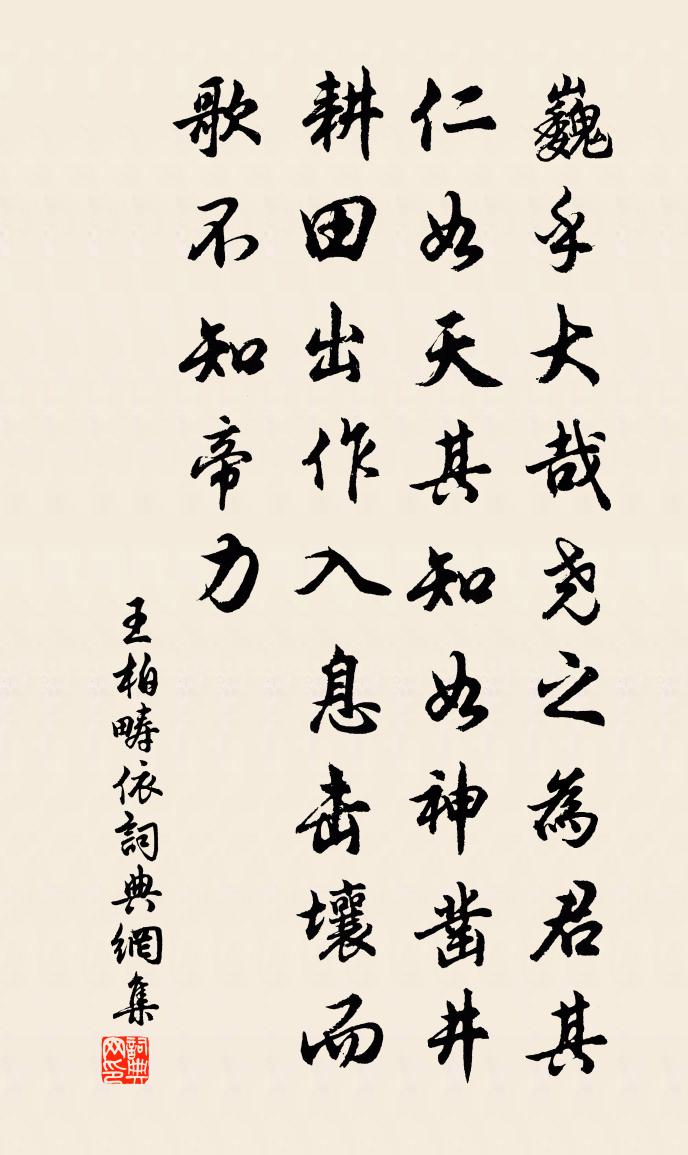 巍乎大哉尧之為君其
仁如天其知如神凿井
耕田出作入息击壤而
歌不知帝力
王柏畴依詞典網集
詞典
网印